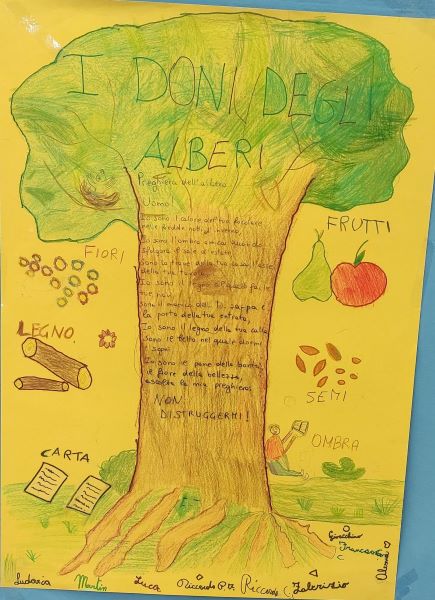 I DONI DEGLI
ALBERI
Preghiera dell'albero
Uomo!
Io sono il calore del tuo focolare
nelle fredde notti d'inverno
Io sono l'ombra amica quando
il sole d'estate
Sono la trave della tua casa l'asse
della tua
Io sono il legno
tue navi
Sono il manico della tua zappa e
la porta della tua entrata,
Io sono il legno della tua culla
sono il letto nel quale dormi
e sogni
Io sono il pane della bontà,
il fiore della bellezza,
ascolta la mia preghiera:
NON
DISTRUGGERMI!
FIORI
FRUTTI
LEGNO
SEMI
CARTA
OMBRA
Gioacchino
Francesco
C
Ludovica Martin Luca Riccardo P. Riccardo C. Fabrizio